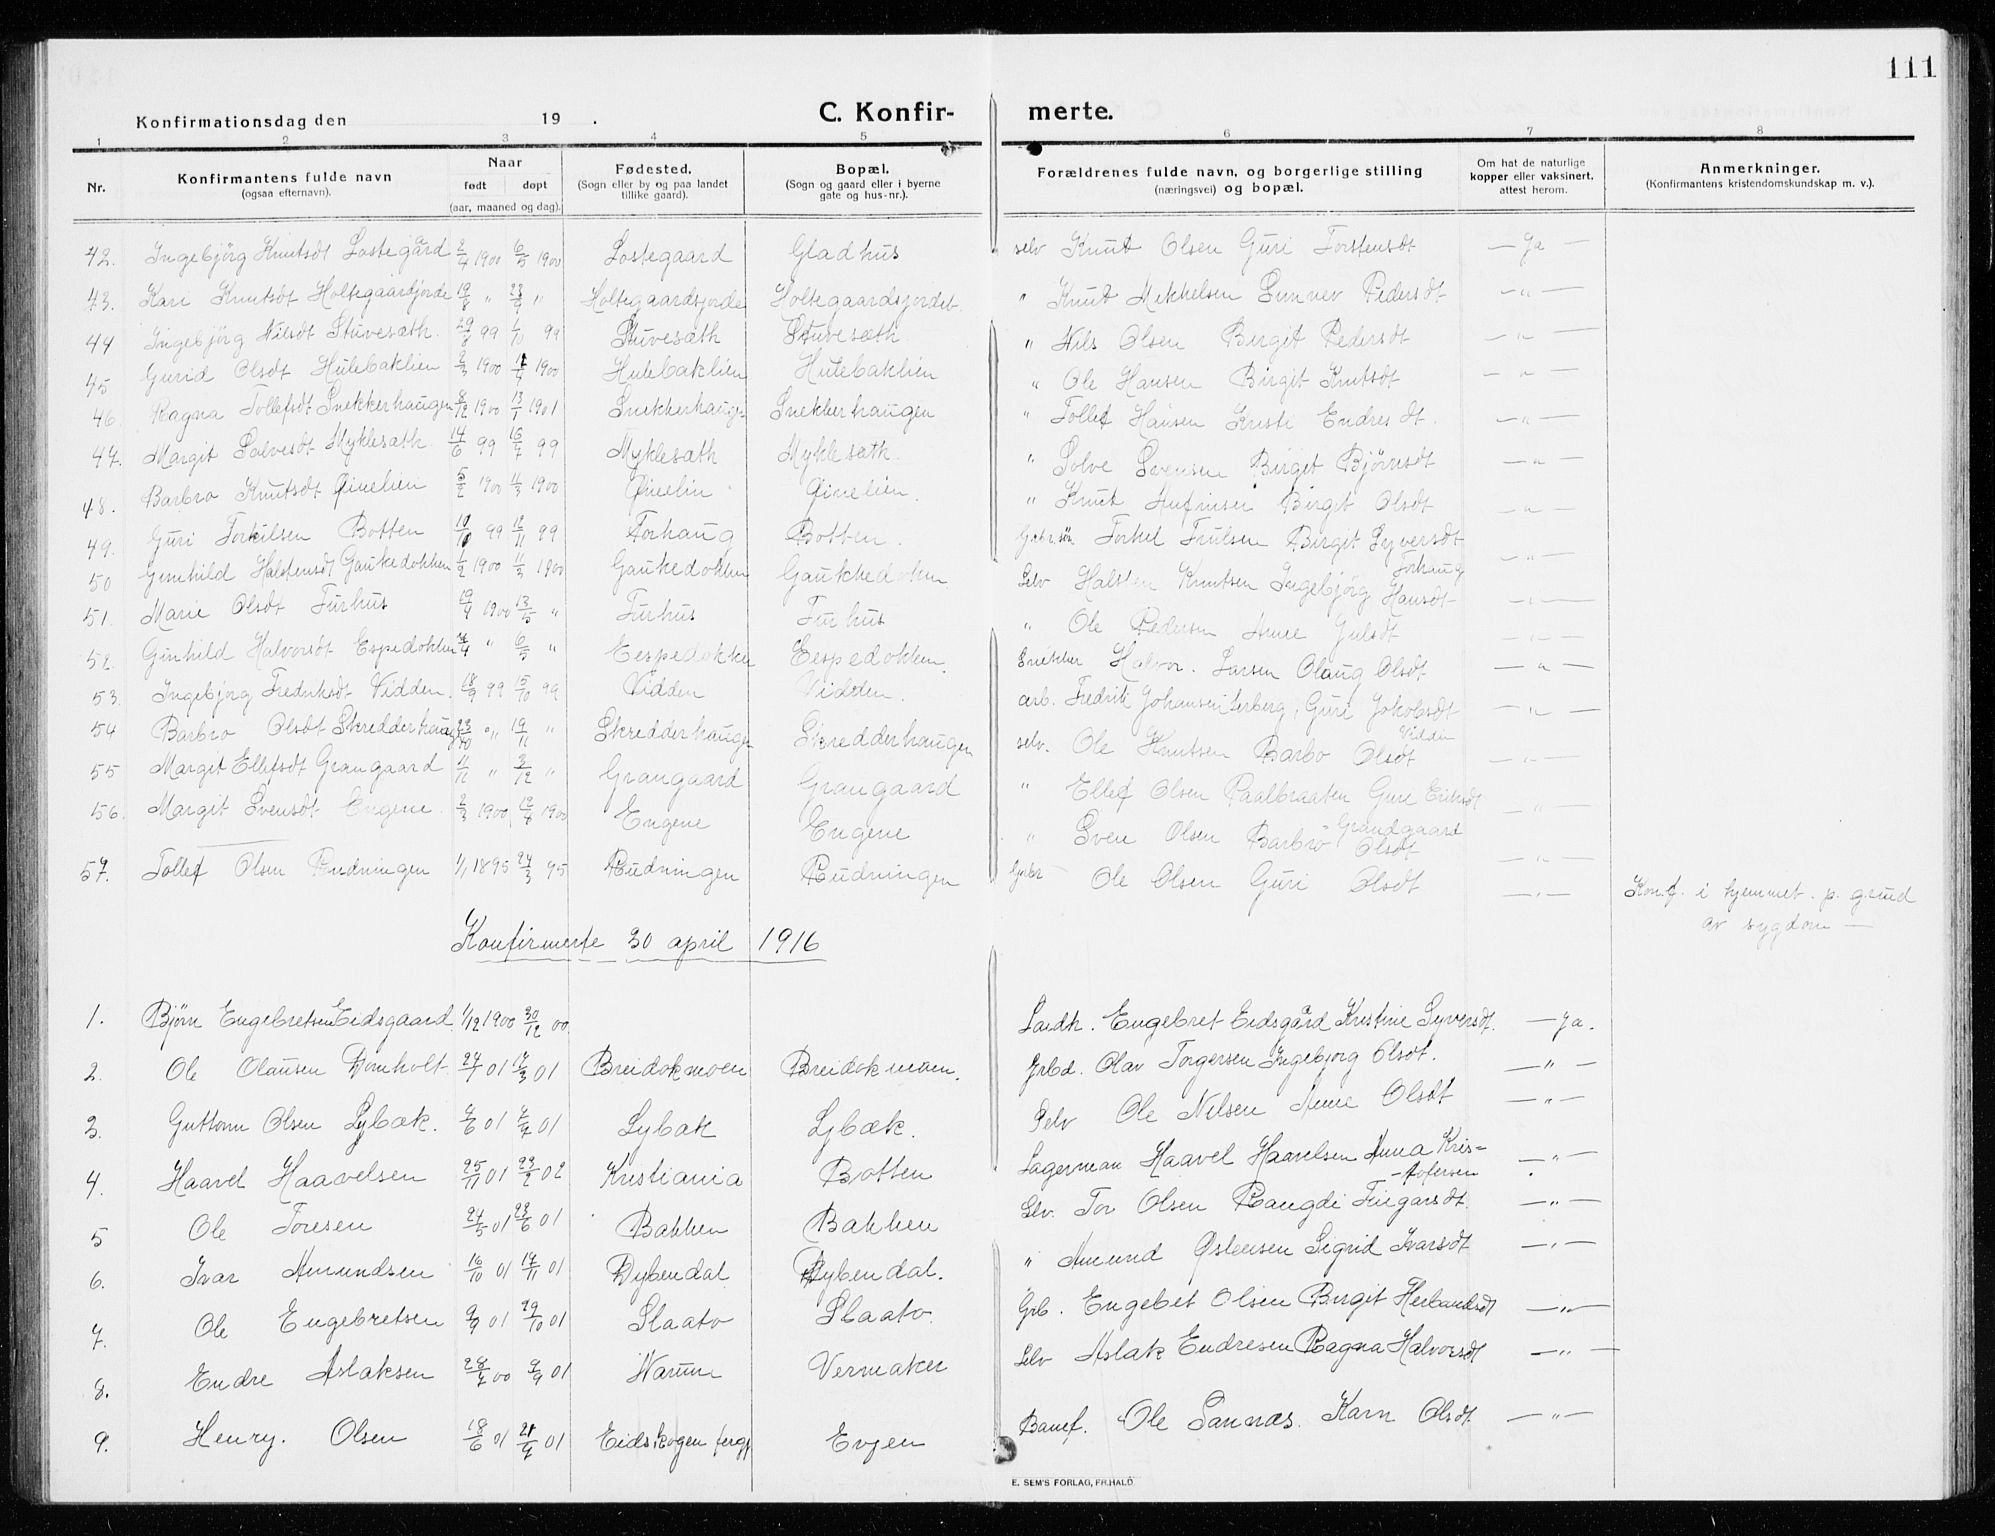 111
Konfirmationsdag den 19 .
C. Konfir- merte.
1 2 3 4 5 6 7 8
Nr.
Konfirmantens fulde navn
(ogsaa efternavn).
Naar
født døpt
(aar, maaned og dag).
Fødested.
(Sogn eller by og paa landet
tillike gaard).
Bopæl.
(Sogn og gaard eller i byerne
gate og hus-nr.).
Forældrenes fulde navn, og borgerlige stilling
(næringsvei) og bopæl.
Om hat de naturlige
kopper eller vaksinert,
attest herom.
Anmerkninger.
(Konfirmantens kristendomskundskap m. v.).
42. Ingebjörg Knutsdt Lostegård 2/4 1900 6/5 1900 Lostegaard Gladhus selv Knut Olsen Guri Torstensdt — Ja —
43. Kari Knutsdt Holtegaardjorde 19/8 " 23/9 " Holtegaardsjorde Holtegaardsjordet " Knut Mikkelsen Sunnev Pedersdt — " —
44 Ingebjörg Nilsdt Stuvesæth. 99 99 Stuvesæth Stuvesæth. " Nils Olsen Birgit Pedersdt — " —
45 Gurid Olsdt Hulebaklien 2/3 1900 1900 Hulebaklien Hulebaklien " Ole Hansen Birgit Knutsdt — " —
46. Ragna Tollefsdt Snekkerhaugen 8/12 1900 13/1 1901 Snekkerhaugen Snekkerhaugen " Tollef Hansen Kristi Endresdt. — " —
47. Margit Solvesdt Myklesæth. 14/6 99 16/7 99 Myklesæth Myklesæth. " Solve Svensen Birgit Bjørnsdt — " —
48. Barbro Knutsdt Qinelien 5/2 1900 11/3 1900 Qinelin Qinelien. " Knut Anfinsen Birgit Olsdt — " —
49. Guri Torkilsen Botten 99 12/11 99 Torhaug Botten. Torkel Birgit Syversdt Torhaug — " —
50 Gunhild Halstensdt Gaukedokken 1/2 1900 11/3 1900 Gaukedokken Gaukkedokken Selv Halsten Knutsen Ingebjörg Hansdt — " —
51. Marie Olsdt Furhus 19/4 1900 13/5 " Furhus Furhus " Ole Pedersen Anne Julsdt — " —
52. Gunhild Halvorsdt Espedokken " 6/5 " Eespedokken Eespedokken. Snekker Halvor. Larsen Olaug Olsdt — " —
53. Ingebjørg Fredriksdt Vidden. 18/9 99 15/10 99 Vidden Vidden. arb. Fredrik Johansen, Guri Jakobsdt Vidden — " —
54 Barbro Olsdt Skredderhaug 23/10 " 19/11 " Skredderhaugen Skredderhaugen selv. Ole Knutsen Barbo Olsdt — " —
55 Margit Ellefsdt Grangaard 11/11 " 3/12 " Grangaard Grangaard " Ellef Olsen Paalbraaten Guri Eriksdt Grandgaard — " —
56. Margit Svensdt Engene. 2/3 1900 1900 Engene Engene " Sven Olsen Barbro Olsdt — " —
57. Tollef Olsen Rudningen 1/1 1895 24/3 95 Rudningen Rudningen Grbr Ole Olsen Guri Olsdt — " — Konf. i hjemmet. p. grund
av sygdom —
Konfirmerte 30 april 1916
1. Bjørn Engebretsen Eidsgaard 1/12 1900 30/12 00 Landh. Engebret Eidsgård Kristine Syversdt. — Ja.
2. Ole Olausen Domholt. 24/1 01 17/3 01 Breidokmoen Breidokmoen. Grbd. Olav Torgersen Ingebjorg Olsdt. — " —
3. Guttorm Olsen Lybæk. 01 01 Lybæk Lybæk. Selv Ole Nilsen Anne Olsdt — " —
4. Haavel Haavelsen 25/11 01 23/2 02 Kristiania Botten Lagerman Haavel Haavelsen Anna Kris- — " —
5 Ole Toresen 24/5 01 23/6 01 Bakken Bakken Selv. Tor Olsen Rangdi Fingarsdt. — " —
6. Ivar Amundsen 16/10 01 17/11 01 Dybendal Dybendal. " Amund Østensen Sigrid Ivarsdt — " —
7. Ole Engebretsen 9/9 01 29/10 01 Slaato Slaato. Grb. Engebet Olsen Birgit Herbandsdt — " —
8. Endre Aslaksen 28/7 00 9/9 01 Narum Vermaker Selv Aslak Endresen Ragna Halvorsdt — " —
9. Henry. Olsen 18/6 01 01 Eidskogen Evjen Banef. Ole Sannæs. Karn Olsdt — " —
E. SEM'S FORLAG, FR.HALD.